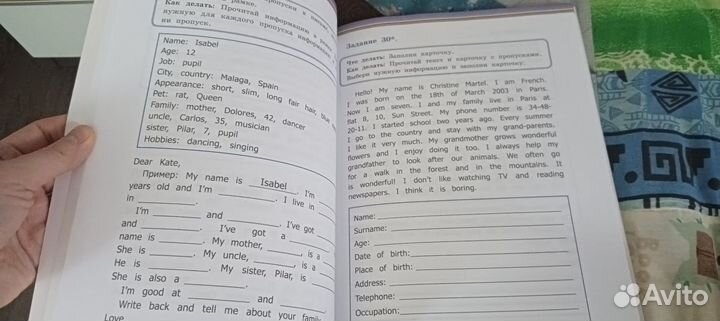 рамке.
Как делать: Прочитай информацию в
нужную для каждого пропуска информацию
ни пропуск.
Name: Isabel
Age: 12
Job: pupil
City, country: Malaga, Spain
Appearance: short, slim, long fair hair, blue
Pet: rat, Queen
Family: mother, Dolores, 42, dancer
uncle, Carlos, 35, musician
sister, Pilar, 7, pupil
Hobbies: dancing, singing
Dear Kate,
Пример: My name is Isabel. I'm
years old and I'm ________. I live in
in ________.
I'm ________ and ________. I've got
and ________. I've got a ________
name is ________. My mother, ________, is a
She is ________. My uncle, ________, is a
He is ________. My sister, Pilar, is
She is also a ________.
I'm good at ________ and ________
Write back and tell me about your family
Love
Задание 30*.
Что делать: Заполни карточку.
Как делать: Прочитай текст и карточку с пропусками.
Выбери нужную информацию и заполни карточку.
Hello! My name is Christine Martel. I am French.
I was born on the 18th of March 2003 in Paris.
Now I am seven. I and my family live in Paris at
flat 8, 10, Sun Street. My phone number is 34-48-
20-11. I started school two years ago. Every summer
I go to the country and stay with my grand-parents.
I like it very much. My grandmother grows wonderful
flowers and I enjoy doing it too. I always help my
grandfather to look after our animals. We often go
for a walk in the forest and in the mountains. It
is wonderful! I don't like watching TV and reading
newspapers. I think it is boring.
Name:
Surname:
Age:
Date of birth:
Place of birth:
Address:
Telephone:
Occupation:
Avito